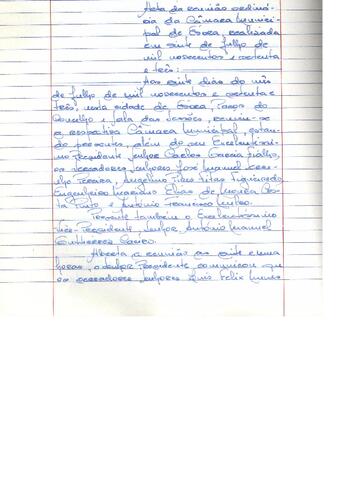 Acta da reunião ordiná-
ria da Câmara Munici-
pal de Évora, realizada
em sete de Julho de
mil novecentos e oitenta
e três:
Aos sete dias do mês
de Julho de mil novecentos e oitenta e
três, nesta cidade de Évora, Paços do
Concelho e Sala das Sessões, reuniu-se
a respectiva Câmara Municipal, estan-
do presentes, além do seu Excelentíssi-
mo Presidente, Senhor
os vereadores, Senhores José Manuel
Angelino
Engenheiro Mariano Elias de Moura
Pinto e António Francisco
Presente também o Excelentíssimo
Vice-Presidente, Senhor António Manuel
Aberta a reunião às vinte e uma
horas, o Senhor Presidente comunicou que
os vereadores, Senhores Luís Félix Nunes